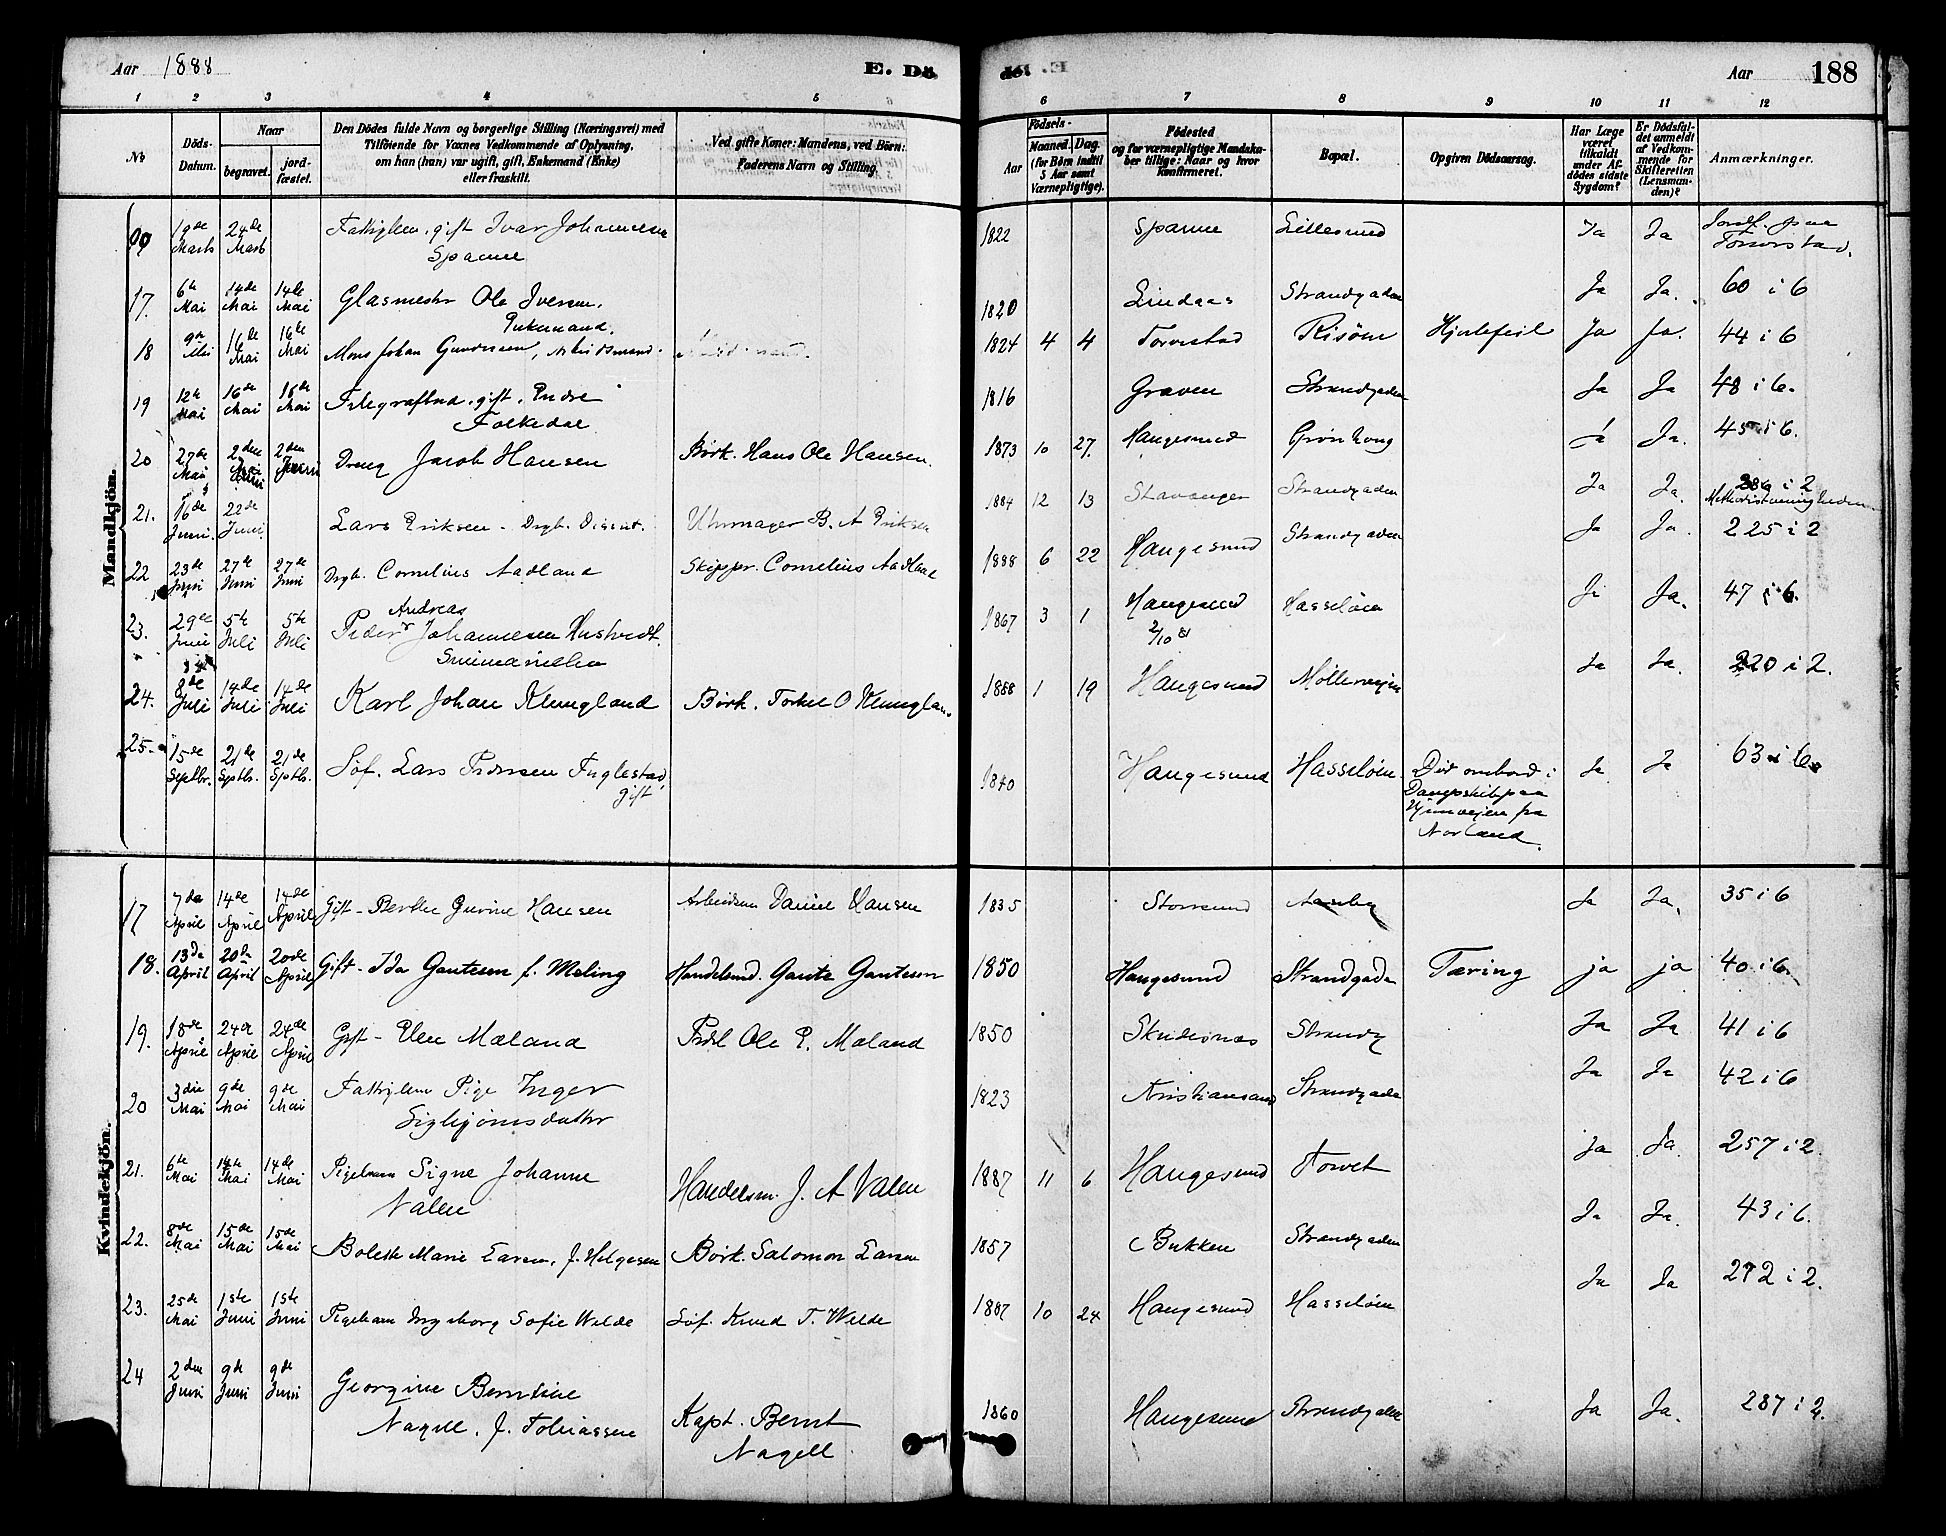 Aar 1888
E. Dö
dе. E.
Aar 188
1 2 3 4 5 6 7 8 9 10 11 12
No
Döds-Datum.
Naar
begravet.
jord-fæstet.
Den Dödes fulde Navn og borgerlige Stilling (Næringsvei) med
Tilföiende for Voxnes Vedkommende af Oplysning,
om han (hun) var ugift, gift, Enkemand (Enke)
eller fraskilt.
Ved gifte Koner: Mandens, ved Börn:
Faderens Navn og Stilling.
Födsels-
Aar
Maaned. Dag.
(for Börn indtil
5 Aar samt
Værnepligtige).
Födested
og for værnepligtige Mandskaber tillige: Naar og hvor konfirmeret.
Bopæl.
Opgiven Dödsaarsag.
Har Læge været tilkaldt under Afdödes sidste Sygdom?
Er Dödsfaldet anmeldt af Vedkommende for Skifteretten (Lensmanden)?
Anmærkninger.
Mandkjön.
19de Marts 24de Marts Fattiglem, gift Ivar Johannesen Spanne 1822 Spanne Lillesund Ja Ja Jordf. paa Torvestad.
17. 6te Mai 14de Mai 14de Mai Glasmester Ole Iversen, Enkemand. 1820 Lindaas Strandgaden Ja Ja. 60 i 6
18 9de Mai 16de Mai 16de Mai Mons Johan Gundersen, 1824 4 4 Torvestad Risöen Hjertefeil Ja Ja. 44 i 6
19 12te Mai 16de Mai 16de Mai Telegrafbud, gift, Endre Folkedal 1816 Graven Strandgaden Ja Ja 48 i 6.
20 27de Mai 2den Juni 2den Juni Dreng Jacob Hansen Börk. Hans Ole Hansen. 1873 10 27. Haugesund Grönhoug Ja. 45 i 6.
21. 16de Juni. 22de Juni Lars Eriksen - Drgb. Dissent. Uhrmager B. A Eriksen 1884 12 13 Stavanger Strandgaden Ja Ja. i 2 Methodistmenigheden
22 23de Juni 27de Juni 27de Juni Drgb. Cornelius Aadland Skipper. Cornelius Aadland 1888 6 22 Haugesund Strandgaden Ja Ja. 225 i 2
23. 29de Juni 5te Juli 5te Juli Peder Andreas Johannesen Hustvedt. 1867 3 1 Haugesund 2/10 81 Hasselöen Ja Ja. 47 i 6.
24. 8de Juli 14de Juli 14de Juli Karl Johan Klungland Börk. Torkel O Klungland 1888 1 19 Haugesund Möllerveien Ja Ja. 220 i 2.
25. 15de Septbr. 21de Septb. 21de Septb. Söf. Lars Pedersen Fuglestad, gift 1840 Haugesund Hasselöen. Död ombord i
Dampskib paa
Hjemveien fra
Norland. Ja Ja 63 i 6
Kvindekjön.
17 7da April 14de April 14de April Gift - Berthe Gurine Hansen Arbeidsm Daniel Hansen 1835 Storesund Ja Ja. 35 i 6
18. 13de April 20de April 20de April Gift - Ida Gautesen f. Meling Handelsmd. Gaute Gautesen 1850 Haugesund Strandgade Tæring ja ja 40 i 6.
19. 18de April 24de April 24de April Gift - Elen Mæland Ole P. Mæland 1850 Skudesnæs Strandg Ja Ja 41 i 6
20 3die Mai 9de Mai 9de Mai Fattiglem Pige Inger Sigbjörnsdatter 1823 Kristiansand Strandgade Ja Ja 42 i 6
21. 6te Mai 14de Mai 14de Mai Pigebarn Signe Johanne Valen Handelsm. J. A Valen 1887 11 6 Haugesund Torvet Ja Ja. 257 i 2.
22. 8de Mai 15de Mai 15de Mai Bolette Marie Larsen, f. Helgesen Börk. Salomon Larsen 1857 Bukken Strandgaden Ja Ja. 43 i 6.
23. 25de Mai 1ste Juni 1ste Juni Pigebarn Ingeborg Sofie Welde Söf. Knud T. Welde 1887 10 24 Haugesund Hasselöen Ja Ja 272 i 2.
24 2den Juni 9de Juni 9de Juni Georgine Berntine Nagell, f. Tobiassen Kapt. Bernt Nagell 1860 Haugesund Strandgaden Ja Ja. 287 i 2.